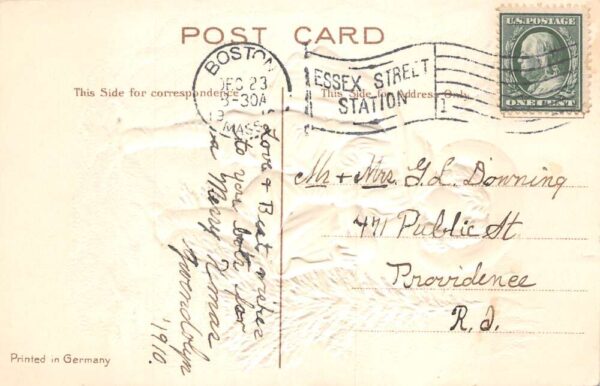 POST CARD
U.S. POSTAGE
ONE CENT
BOSTON
DEC 23
3-30A
MASS.
ESSEX STREET
STATION
1
This Side for correspondence
This Side for Address Only
Love & Best wishes
to you both for
a Merry Xmas
Gwendolyn
'1910.
Mr + Mrs. G. L. Downing
471 Public St.
Providence
R. I.
Printed in Germany